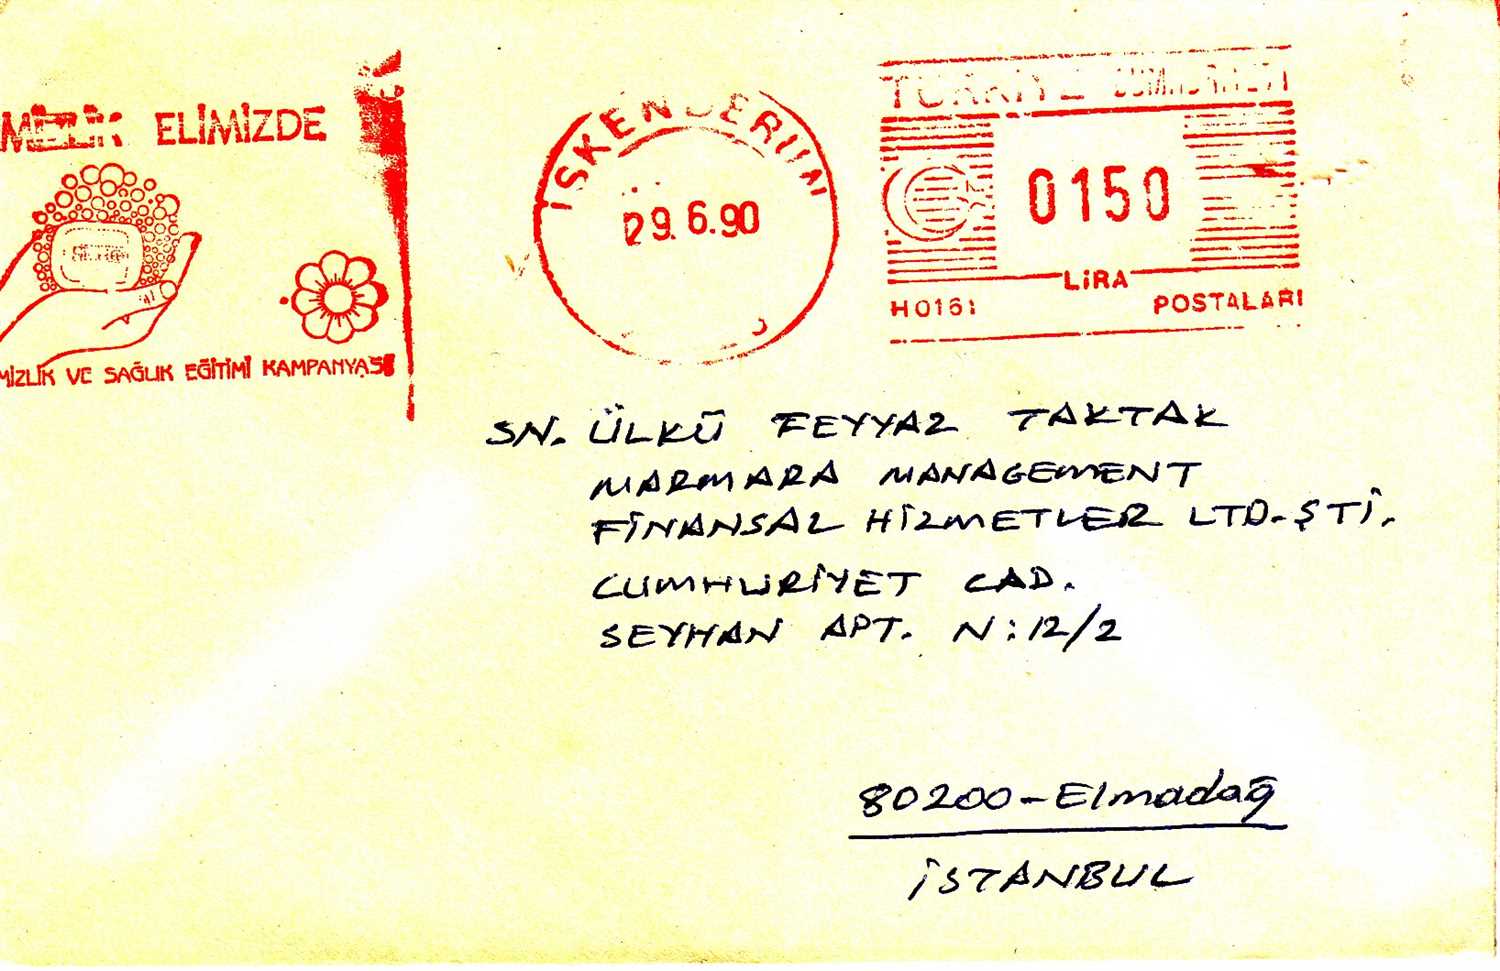 ELİMİZDE
MİZLİK VE SAĞLIK EĞİTİMİ KAMPANYASI
İSKENDERUN
29.6.90
TÜRKİYE CUMHURİYETİ
0150
LİRA
H0161 POSTALARI
SN. ÜLKÜ FEYYAZ TAKTAK
MARMARA MANAGEMENT
FİNANSAL HİZMETLER LTD. ŞTİ.
CUMHURİYET CAD.
SEYHAN APT. N:12/2
80200-Elmadağ
İSTANBUL